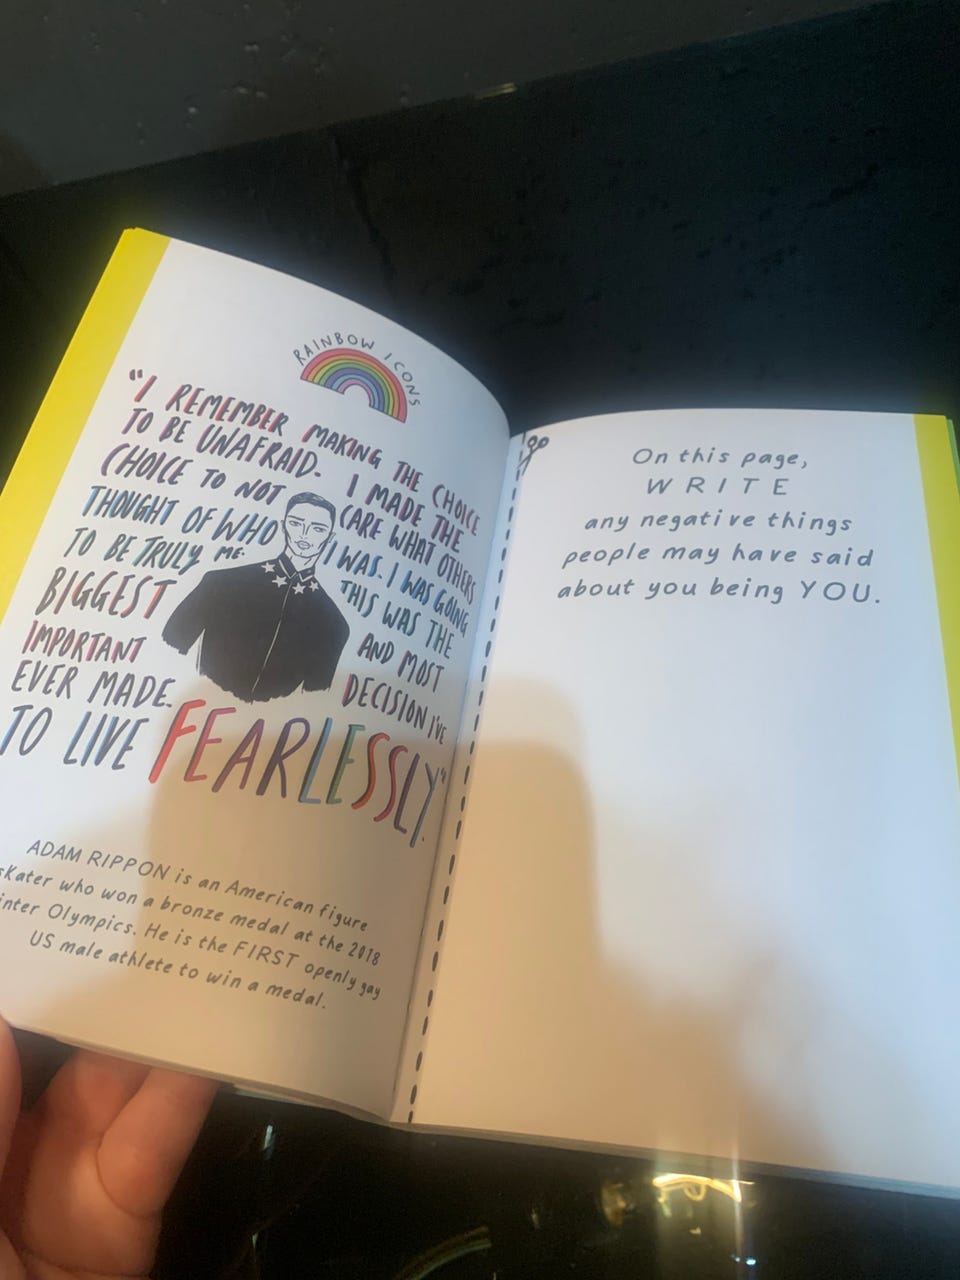 RAINBOW ICONS
"I REMEMBER MAKING THE CHOICE
TO BE UNAFRAID. I MADE THE
CHOICE TO NOT CARE WHAT OTHERS
THOUGHT OF WHO I WAS. I WAS GOING
TO BE TRULY ME. THIS WAS THE
BIGGEST AND MOST
IMPORTANT DECISION I'VE
EVER MADE.
TO LIVE FEARLESSLY."
ADAM RIPPON is an American figure
skater who won a bronze medal at the 2018
inter Olympics. He is the FIRST openly gay
US male athlete to win a medal.
On this page,
WRITE
any negative things
people may have said
about you being YOU.